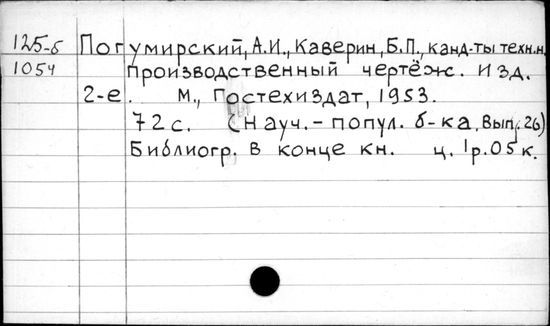 125-б Погумирский, А.И., Каверин, Б.П., канд-ты техн.н.
1054 Производственный чертёж. Изд.
2-е. М., Гостехиздат, 1953.
72 с. (Науч.-попул. б-ка. Вып. 26)
Библиогр. в конце кн. ц. 1р.05к.